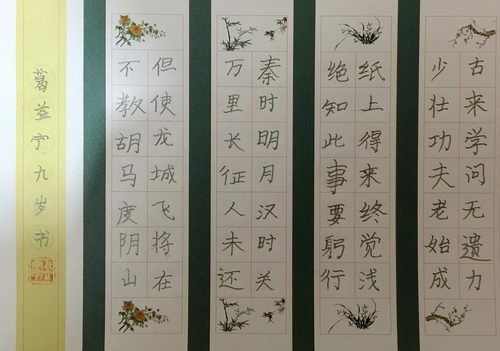 古来学问无遗力
少壮功夫老始成
纸上得来终觉浅
绝知此事要躬行
秦时明月汉时关
万里长征人未还
但使龙城飞将在
不教胡马度阴山
葛益宁九岁书